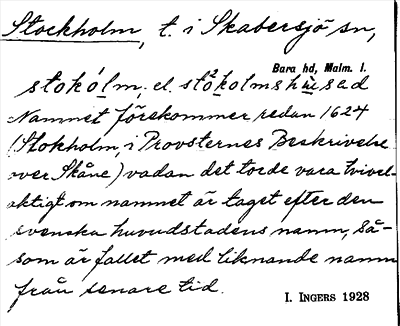 Stockholm, t. i Skabersjö sn,
Bara hd, Malm. l.
stokólm, el. stòkolmshùsad
Namnet förekommer redan 1624
(Stokholm, i Provsternes Beskrivelse
over Skåne) vadan det torde vara tvivel-
aktigt om namnet är taget efter den
svenska huvudstadens namn, så-
som är fallet med liknande namn
från senare tid.
I. INGERS 1928